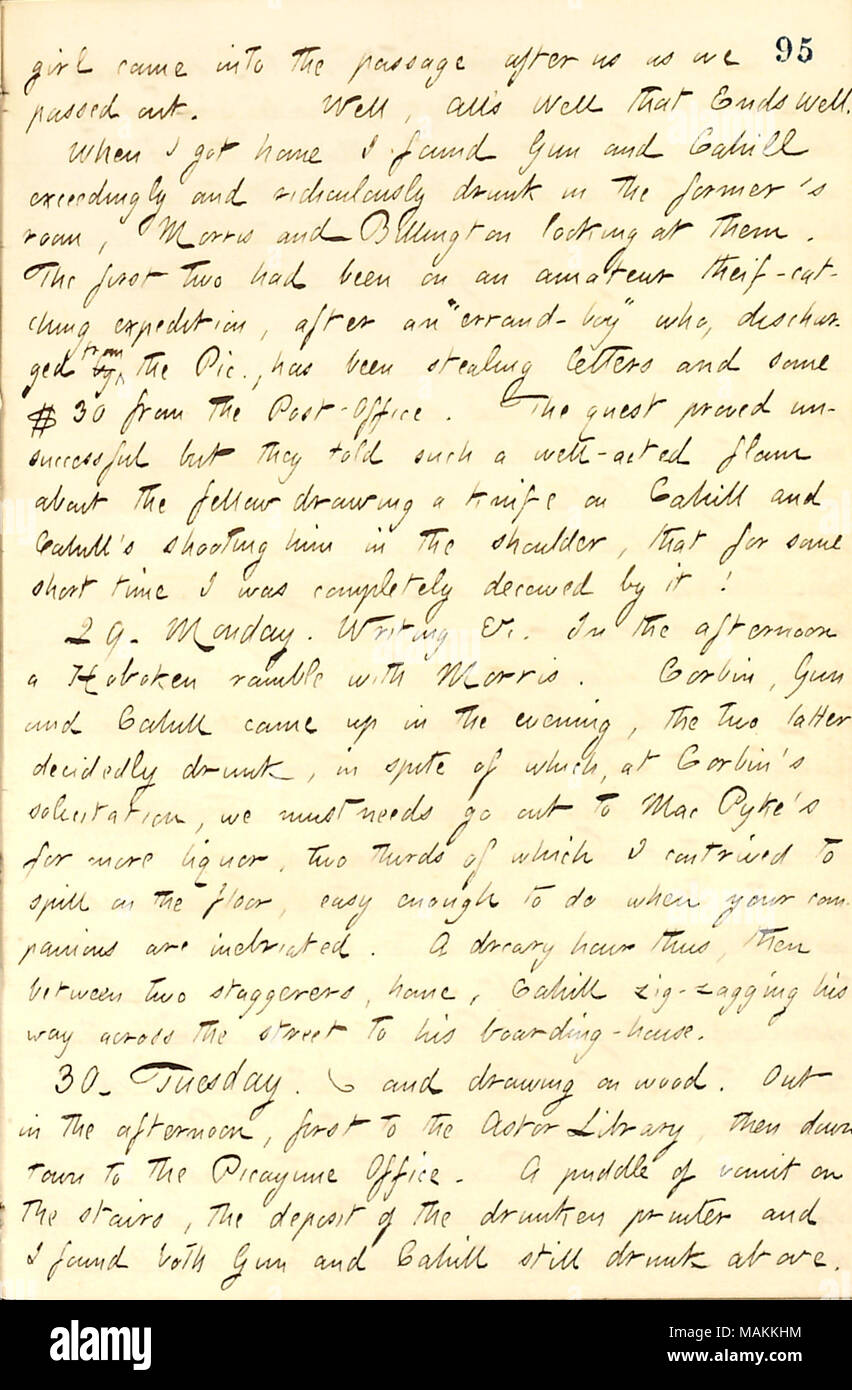 95
girl came into the passage after us as we
passed out. Well, all's Well that Ends well.
When I got home I found Gun and Cahill
exceedingly and ridiculously drunk in the former's
room, Morris and Billington looking at them.
The first two had been on an amateur theif-cat-
ching expedition, after an "errand-boy" who, dischar-
ged by from the Pic., has been stealing letters and some
$30 from the Post-Office. The quest proved un-
successful but they told such a well-acted flam
about the fellow drawing a knife on Cahill and
Cahill's shooting him in the shoulder, that for some
short time I was completely deceived by it!
29. Monday. Writing &c. In the afternoon
a Hoboken ramble with Morris. Corbin, Gun
and Cahill came up in the evening, the two latter
decidedly drunk, in spite of which, at Corbin's
solicitation, we must needs go out to Mac Pyke's
for more liquor, two thirds of which I contrived to
spill on the floor, easy enough to do when your com-
panions are inebriated. A dreary hour thus, then
between two staggerers, home, Cahill zig-zagging his
way across the street to his boarding-house.
30. Tuesday. and drawing on wood. Out
in the afternoon, first to the Astor Library, then down
town to the Picayune Office. A puddle of vomit on
the stairs, the deposit of the drunken printer and
I found both Gun and Cahill still drunk above.
alamy
Image ID: MAKKHM
www.alamy.com